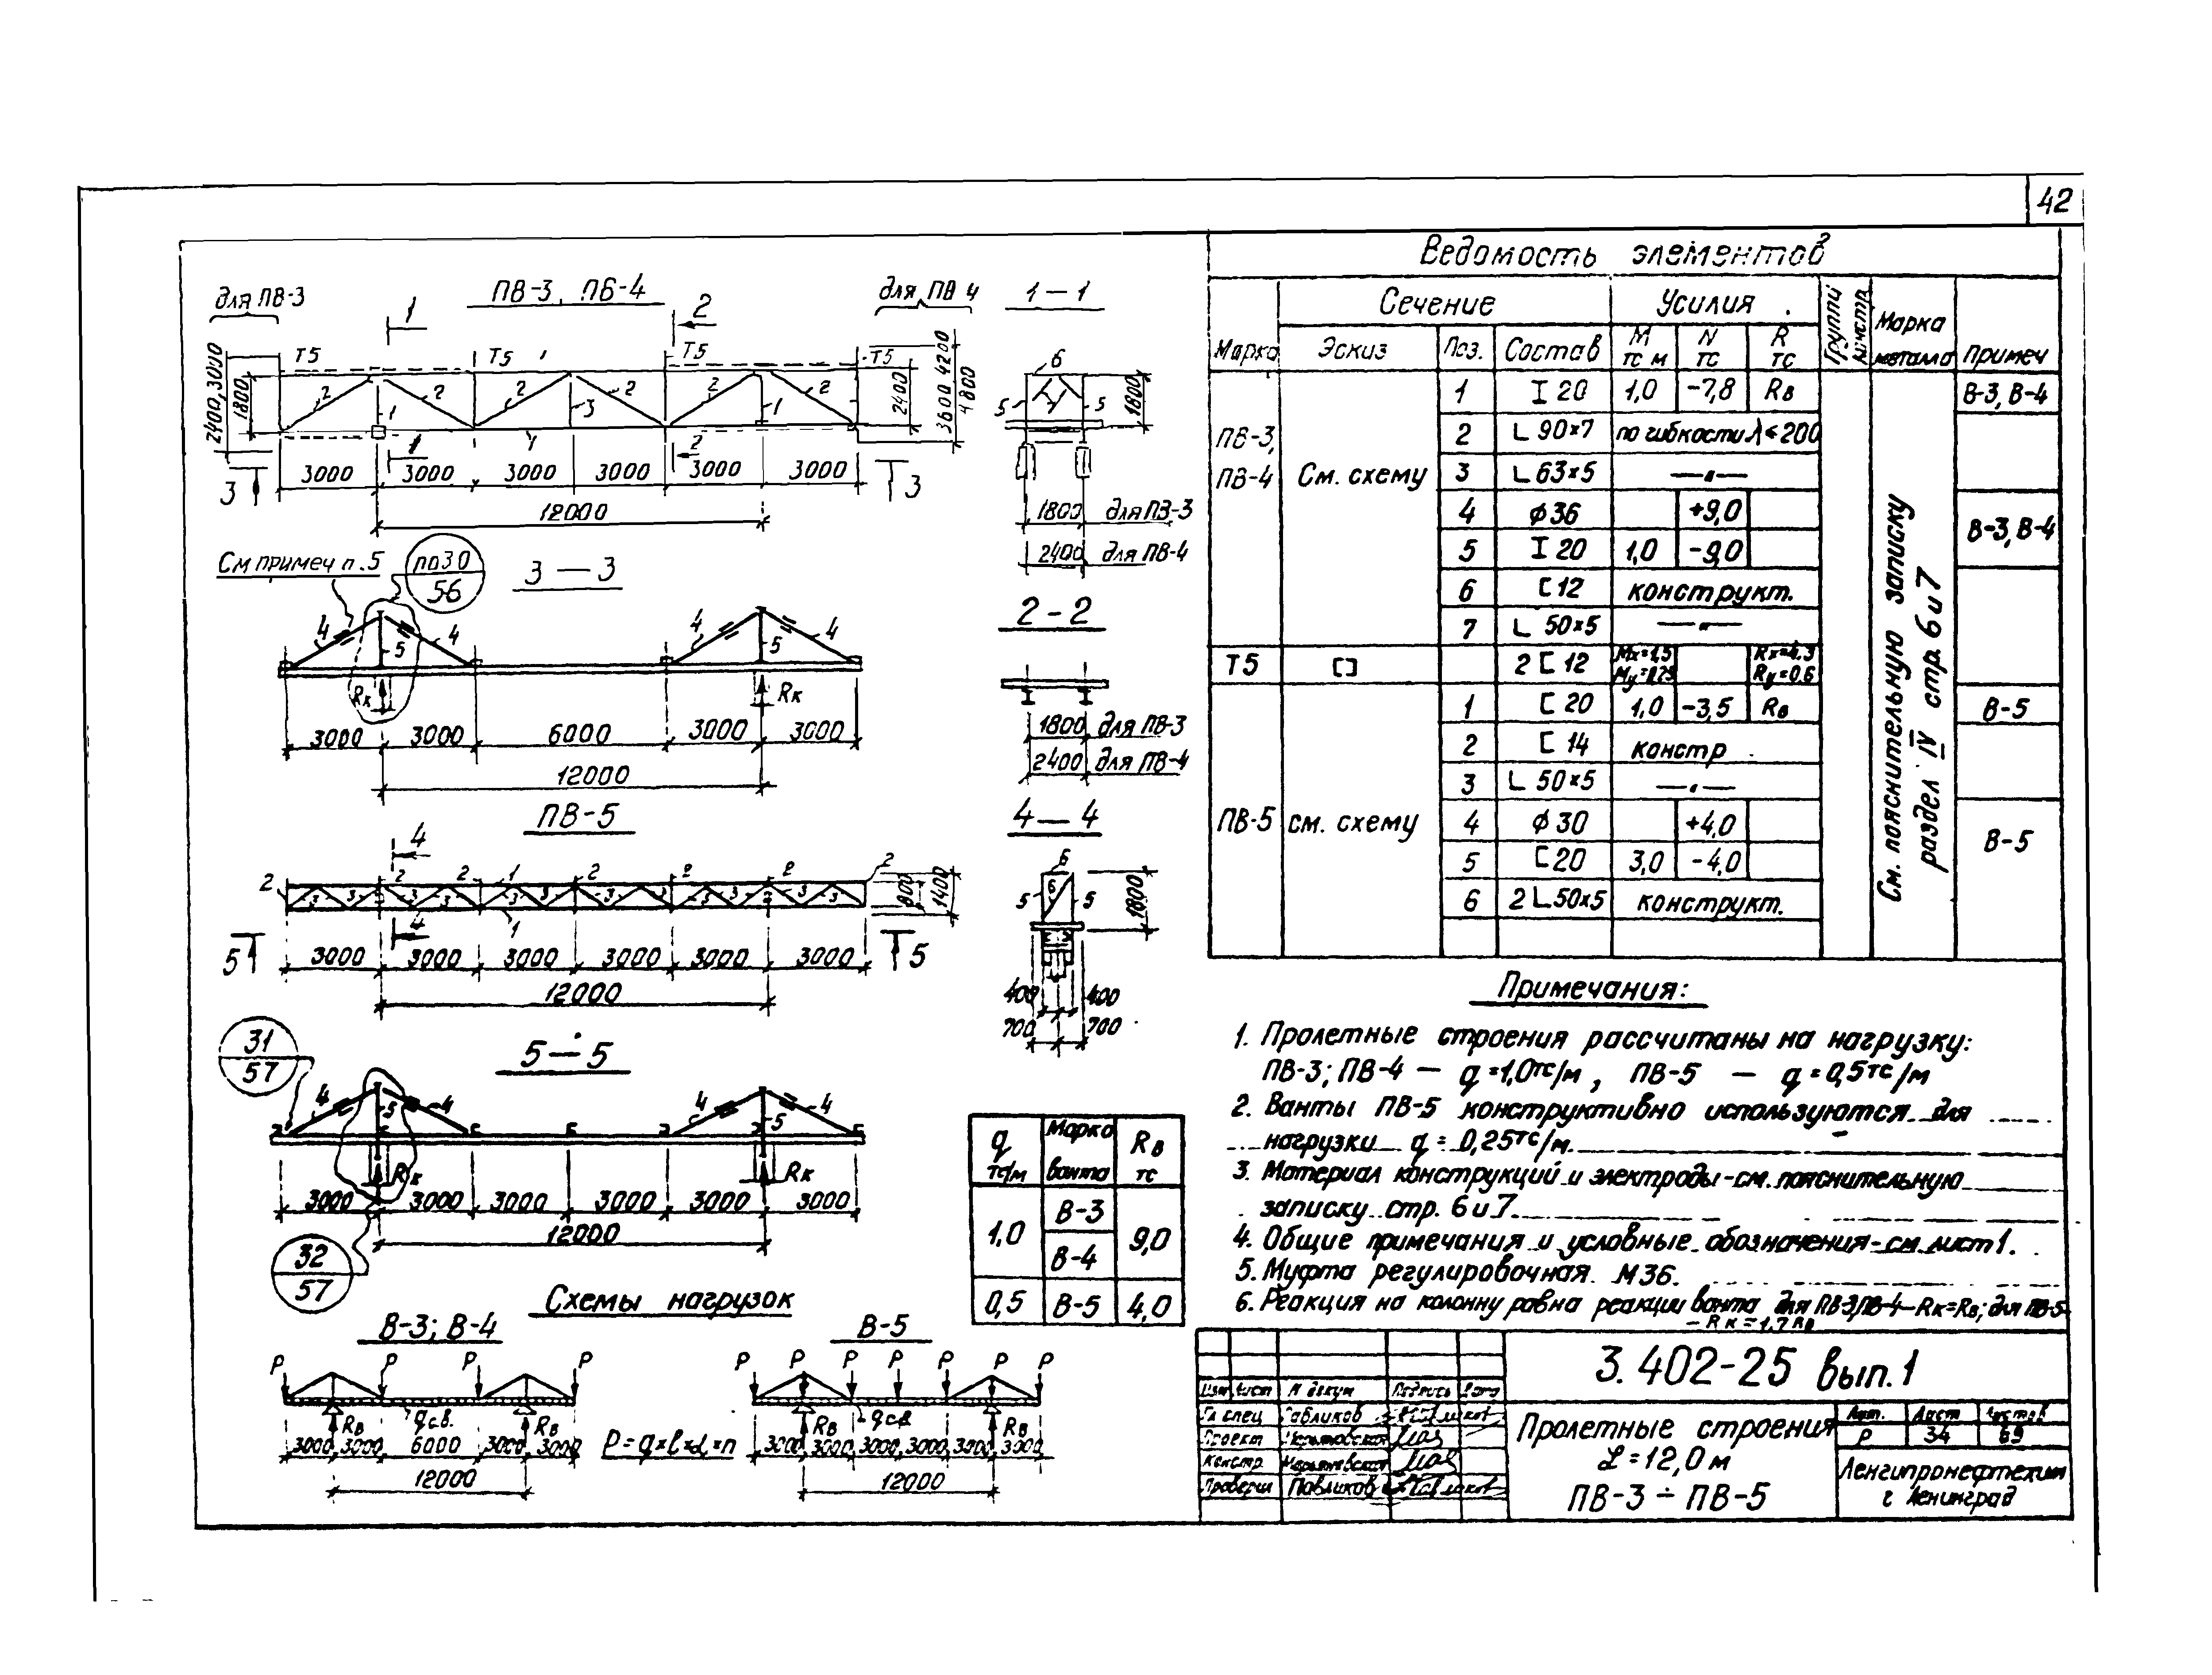 42
для ПВ-3
ПВ-3, ПВ-4
для ПВ 4
1 2
Т5 Т5 Т5 Т5
2400,3000
1800
2 2 2 2 2 2
1 3 1
1
2400
3600 4200
4800
1 2
3000 3000 3000 3000 3000 3000
3 3
12000
1 — 1
6
5 5
7
1800
1800 для ПВ-3
2400 для ПВ-4
См примеч п.5
по30
56
3 — 3
4 4 4 4
5 5
Rк Rк
3000 3000 6000 3000 3000
12000
2 - 2
1800 для ПВ-3
2400 для ПВ-4
ПВ-5
4
2 2 2 1 2 2 2 2
3 3 3 3 3 3 3 3 3 3
800
1400
4 1
5 5
3000 3000 3000 3000 3000 3000
12000
4 — 4
6
5 6 5
1800
400 400
700 700
31
57
5 — 5
4 4 4 4
5 5
Rк Rк
3000 3000 3000 3000 3000 3000
12000
32
57
q тс/м Марка ванта Rв тс
1,0 В-3 9,0
В-4
0,5 В-5 4,0
Схемы нагрузок
В-3; В-4
В-5
P P P P
P P P P P P P
Rв qс.в. Rв
3000 3000 6000 3000 3000
12000
P = q×ℓ×α×n
Rв qс.в Rв
3000 3000 3000 3000 3000 3000
12000
Ведомость элементов
Марка Сечение Усилия Группы констр. Марка металла Примеч
Эскиз Поз. Состав М тс м N тс R тс
ПВ-3, ПВ-4 См. схему
1 I 20 1,0 -7,8 Rв В-3, В-4
2 L 90×7 по гибкости λ≤200
3 L 63×5 —"—
4 ф 36 +9,0 В-3, В-4
5 I 20 1,0 -9,0
6 [ 12 конструкт.
7 L 50×5 —"—
Т5 [] 2 [ 12 Mx=1,5 Rx=4,3
Ry=0,6
ПВ-5 см. схему
1 [ 20 1,0 -3,5 Rв В-5
2 [ 14 констр.
3 L 50×5 —"—
4 ф 30 +4,0 В-5
5 [ 20 3,0 -4,0
6 2 L 50×5 конструкт.
См. пояснительную записку
раздел IV стр. 6 и 7
Примечания:
1. Пролетные строения рассчитаны на нагрузку:
ПВ-3; ПВ-4 — q = 1,0тс/м, ПВ-5 — q = 0,5тс/м
2. Ванты ПВ-5 конструктивно используются для
нагрузки q = 0,25тс/м.
3. Материал конструкций и электроды-см. пояснительную
записку стр. 6 и 7.
4. Общие примечания и условные обозначения-см лист 1.
5. Муфта регулировочная М36.
6. Реакция на колонну равна реакции ванта для ПВ-3,ПВ-4—Rк=Rв; для ПВ-5
— Rк = 1,7 Rв
3.402-25 вып.1
Изм Лист N докум Подпись Дата
Гл спец Павликов
Проект Марьяновская
Констр Марьяновская
Провери Павликов
Пролетные строения
L = 12,0 м
ПВ-3 ÷ ПВ-5
Лит. Лист Листов
Р 34 69
Ленгипронефтехим
г Ленинград